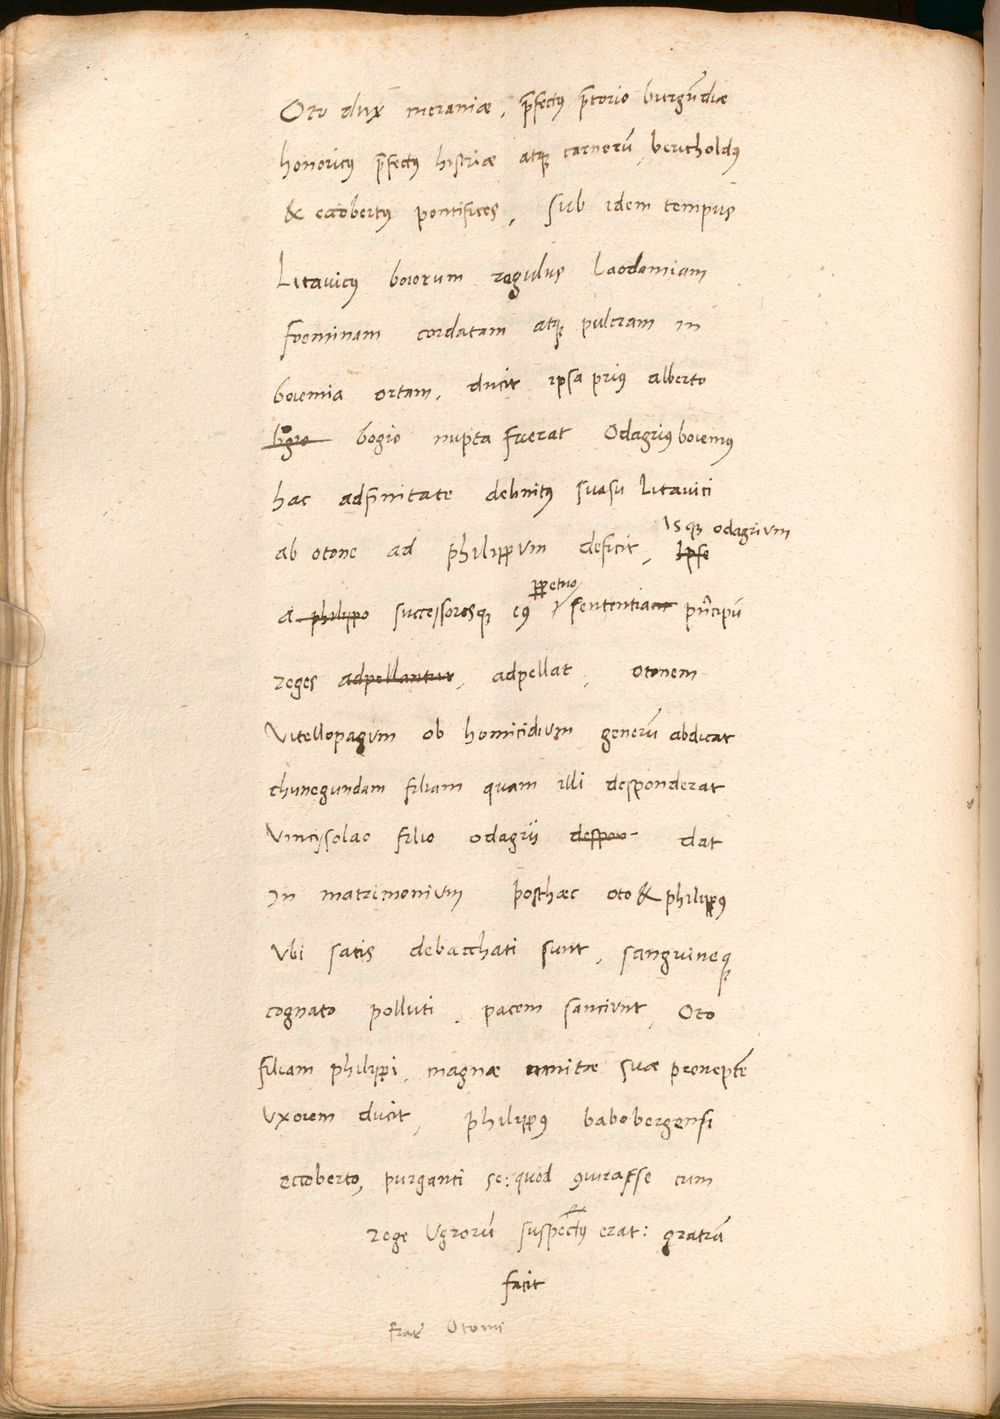 Oto dux meraniæ, p̄fectꝰ p̄torio burgūdiæ
honoricꝰ p̄fectꝰ histriæ atqꝫ carnorū, bertholdꝰ
& eccobertꝰ pontifices, sub idem tempus
Litavicꝰ boiorum regulus Laodamiam
foeminam cordatam atqꝫ pulcram in
boiemia ortam, ducit ipsa priꝰ alberto
bogio nupta fuerat Odagriꝰ boiemꝰ
hac adfinitate debnitꝰ suasu Litavici
ab otone ad philippum deficit, Ipse Isqꝫ odagrium
a philippo successoresqꝫ eꝰ ꝑpetuo sententiam prīcipū
reges adpellantur, adpellat, otonem
Vitellopagum ob homicidium generū abdicat
chunegundam filiam quam illi desponderat
Vincislao filio odagrii despon dat
in matrimonium posthæc oto & philippꝰ
Vbi satis debacchati sunt, sanguineqꝫ
cognato polluti, pacem sanciunt, Oto
filiam philippi, magnæ amitæ suæ proneptē
Vxorem ducit, philippꝰ babobergensi
eccoberto, purganti se: quod ꝯiurasse cum
rege Vgrorū suspectꝰ erat: gratiā
facit